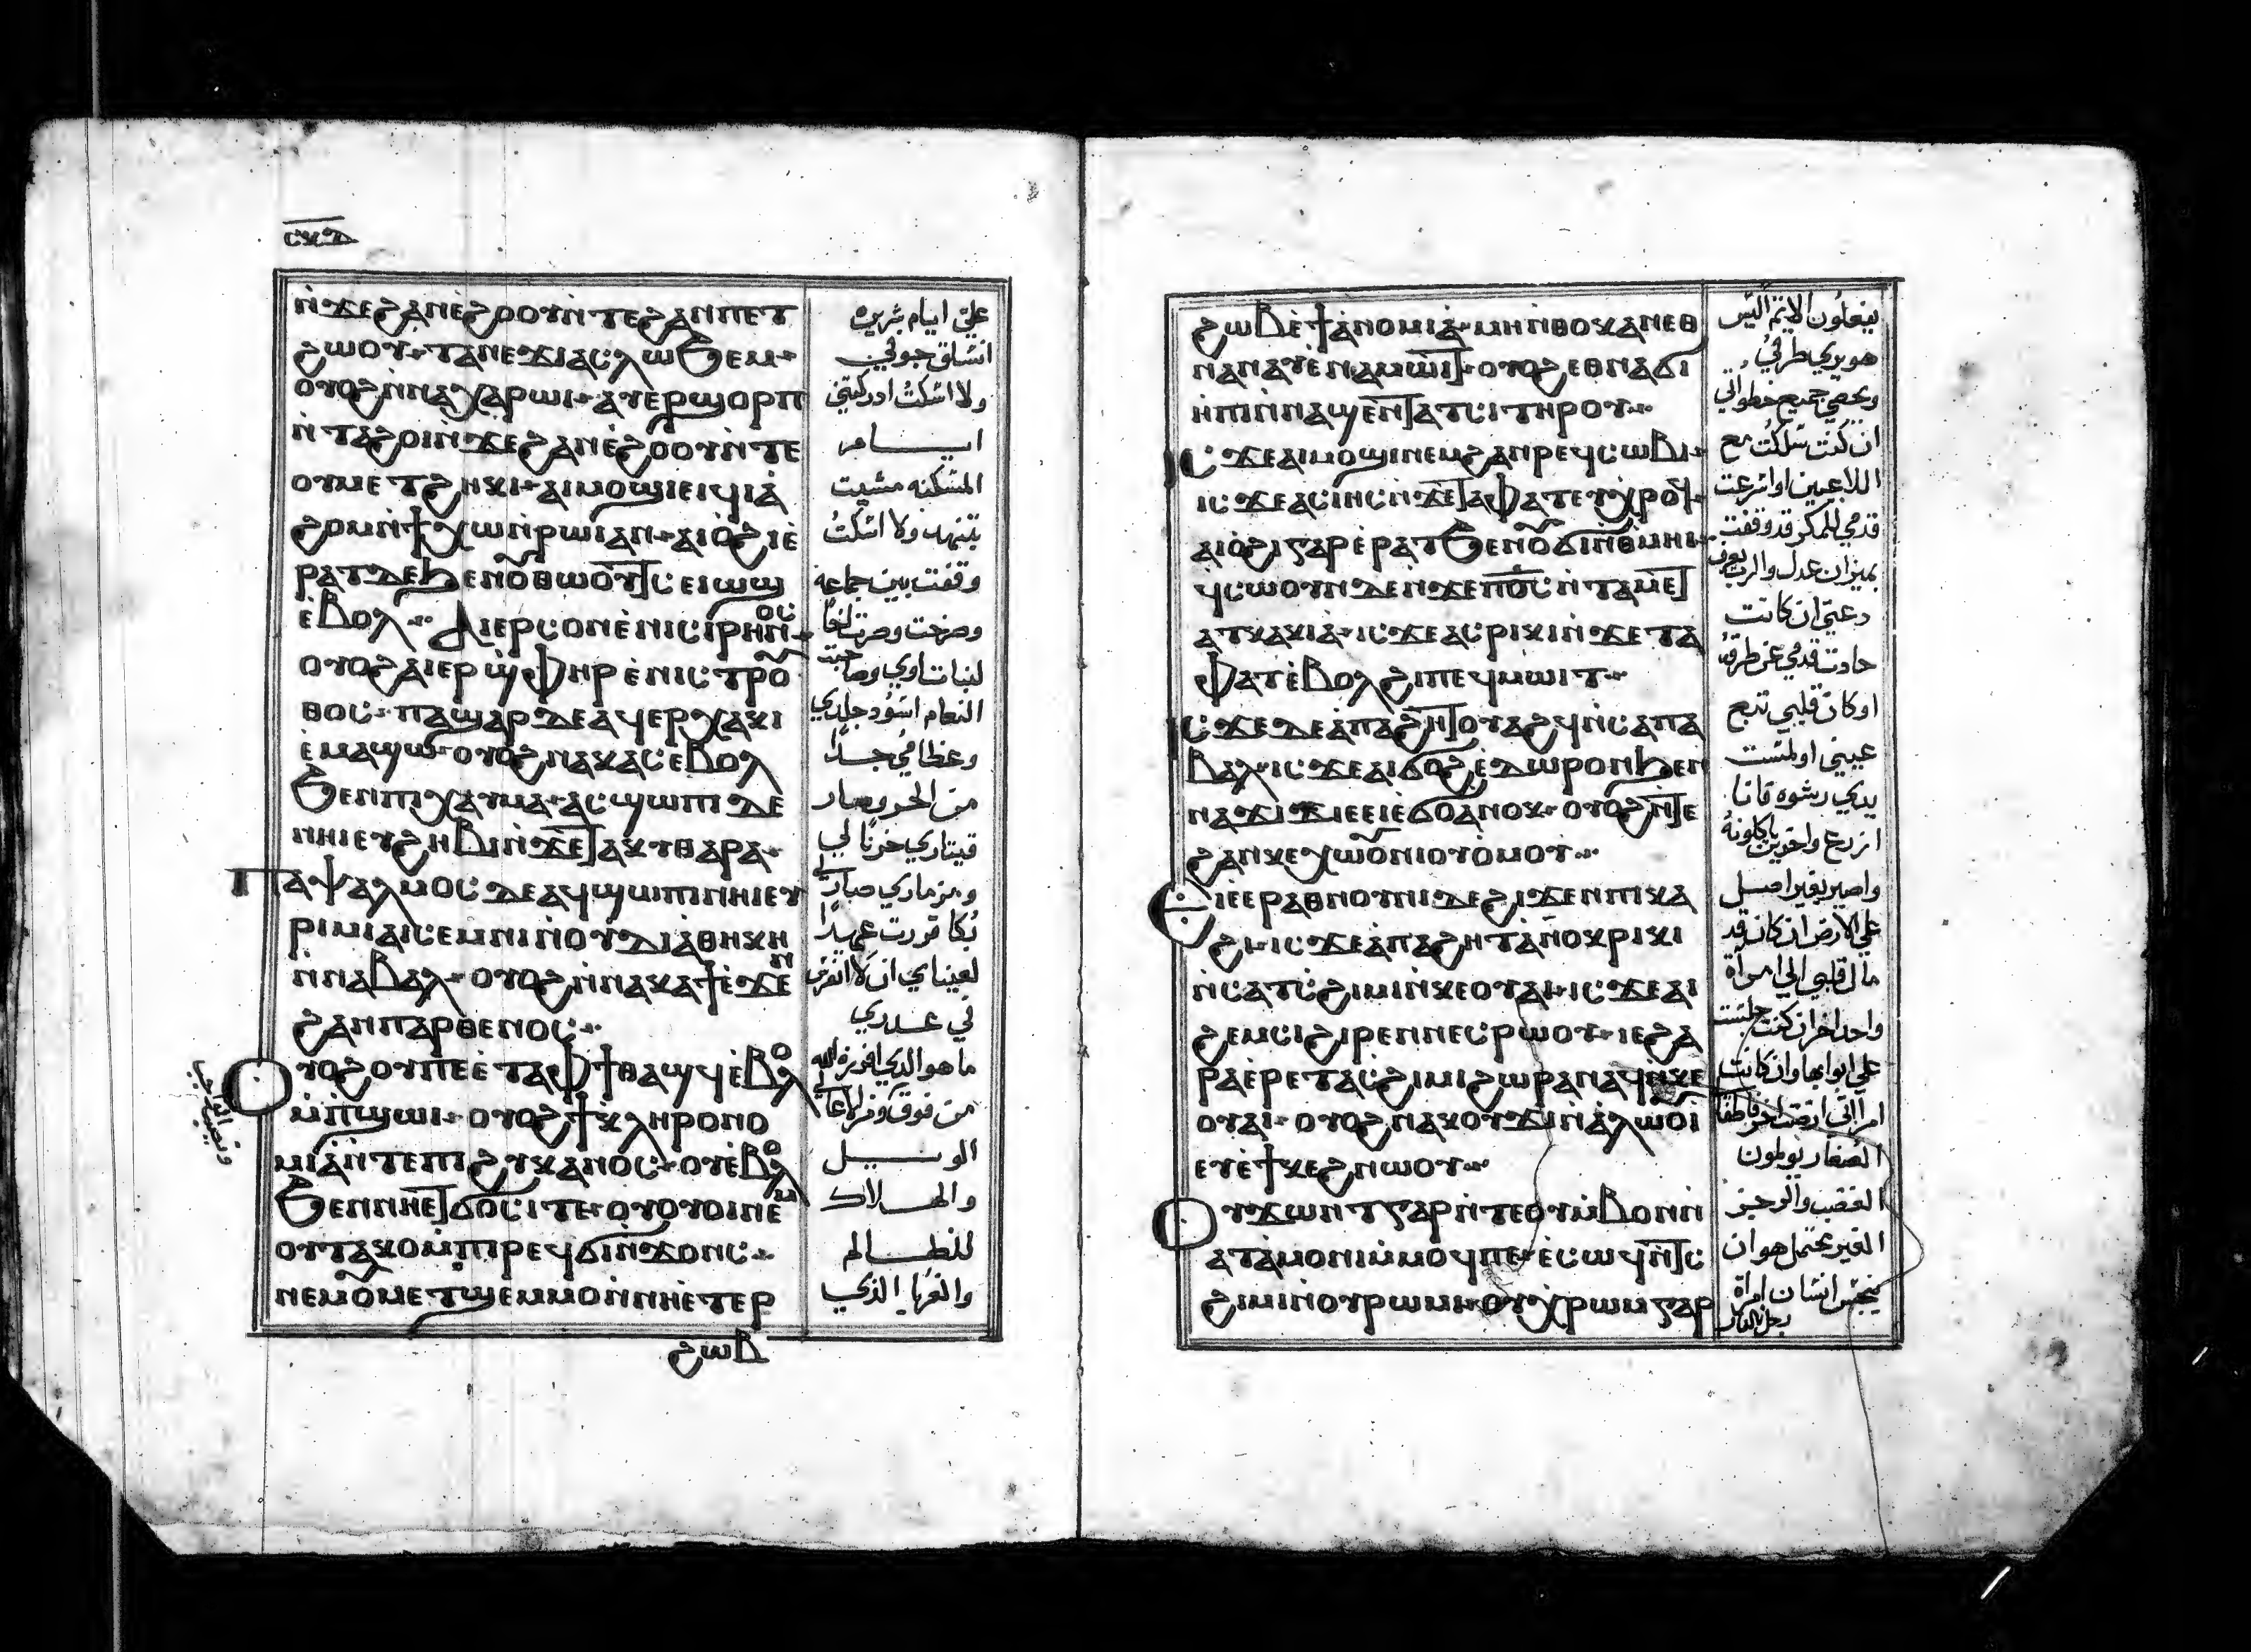 ⲛ̀ϫⲉϩⲁⲛⲉ̀ϩⲟⲟⲩⲛ̀ⲧⲉϩⲁⲛⲡⲉⲧ
ϩⲱⲟⲩ ⲧⲁⲛⲉϫⲓⲁⲥⲗⲱϧⲉⲙ
ⲟⲩⲟϩⲛ̀ⲛⲁⲭⲁⲣⲱⲓ ⲁⲩⲉⲣϣⲟⲣⲡ
ⲛ̀ⲧⲁϩⲟⲓⲛ̀ϫⲉϩⲁⲛⲉ̀ϩⲟⲟⲩⲛ̀ⲧⲉ
ⲟⲩⲙⲉⲧϩⲏⲕⲓ ⲁⲓⲙⲟϣⲓⲉⲓϥⲓⲁ̀
ϩⲟⲙⲛ̀ϯⲭⲱⲛ̀ⲣⲱⲓⲁⲛ ⲁⲓⲟ̀ϩⲓⲉ̀
ⲣⲁⲧⲇⲉϧⲉⲛⲟ̄ⲑⲱⲟⲩϯⲥⲉⲓⲱϣ
ⲉ̀ⲃⲟⲗ ⲁⲓⲉⲣⲥⲟⲛⲉ̀ⲛⲓⲥⲓⲣⲏⲛⲟⲥ
ⲟⲩⲟϩⲁⲓⲉⲣϣ̀ⲫⲏⲣⲉ̀ⲛⲓⲥⲧⲣⲟ̄
ⲑⲟⲥ ⲡⲁϣⲁⲣⲇⲉⲁϥⲉⲣⲭⲁⲕⲓ
ⲉ̀ⲙⲁϣⲱ ⲟⲩⲟϩⲛⲁⲕⲁⲥⲉⲃⲟⲗ
ϧⲉⲛⲡⲓⲭⲁⲩⲙⲁ ⲁⲥϣⲱⲡⲓⲇⲉ
ⲛⲏⲓⲉⲩϩⲏⲃⲓⲛ̀ϫⲉⲧⲁⲕⲩⲑⲁⲣⲁ
ⲡⲁⲯⲁⲗⲙⲟⲥⲇⲉⲁϥϣⲱⲡⲓⲛⲏⲓⲉⲩ
ⲣⲓⲙⲓⲁⲓⲥⲉⲙⲛⲓⲛ̀ⲟⲩⲇⲓⲁⲑⲏⲕⲏ
ⲛ̀ⲛⲁⲃⲁⲗ ⲟⲩⲟϩⲛ̀ⲛⲁⲕⲁϯⲉ̀ϫⲉⲛ
ϩⲁⲛⲡⲁⲣⲑⲉⲛⲟⲥ
ⲟⲩⲟϩⲟⲩⲡⲉⲉ̀ⲧⲁⲫϯⲑⲁϣϥⲉ̀ⲃⲟⲗ
ⲙ̀ⲡ̀ϣⲱⲓ ⲟⲩⲟϩϯⲕⲗⲏⲣⲟⲛⲟ
ⲙⲓⲁ̀ⲛ̀ⲧⲉⲡⲓϩⲩⲕⲁⲛⲟⲥ ⲟⲩⲉ̀ⲃⲟⲗ
ϧⲉⲛⲛⲏⲉⲧϭⲟⲥⲓⲧⲉ ⲟⲩⲟⲩⲟⲓⲛⲉⲙ
ⲟⲩⲧⲁⲕⲟⲙ̀ⲡⲓⲣⲉϥϭⲓⲛ̀ϫⲟⲛⲥ
ⲛⲉⲙⲟ̄ⲙⲉⲧϣⲉⲙⲙⲟⲛ̀ⲛⲏⲉ̀ⲧⲉⲣ
ϩⲱⲃ
علي ايام شريره
انشلق جوفي
ولا اسكت ادركتني
ايام
المسكنه مشيت
بتنهد ولا اسكت
وقفت بين جماعه
وصرخت وصرت اخا
لبنات اوي وصاحبت
النعام اسود جلدي
وعظامي جدا
من الحر وصار
قيتاري حزنا لي
ومزماري صار لي
بكا قررت عهدا
لعيناي ان لا اتفرس
في عدري
ما هو الدي افرزه الله
من فوق
الويل
والهلاك
للظالم
والغربا الذي
ϩⲱⲃⲉ̀ϯⲁ̀ⲛⲟⲙⲓⲁ̀ ⲙⲏⲛ̀ⲑⲟϥⲁⲛⲉⲑ
ⲛⲁⲛⲁⲩⲉ̀ⲛⲁⲙⲱⲓⲧ ⲟⲩⲟϩⲉⲑⲛⲁϭⲓ
ⲏⲡⲓⲛ̀ⲛⲁϣⲉⲛⲧⲁⲧⲥⲓⲧⲏⲣⲟⲩ
ⲓⲥϫⲉⲁⲓⲙⲟϣⲓⲛⲉⲙϩⲁⲛⲣⲉϥⲥⲱⲃⲓ
ⲓⲥϫⲉⲁⲥⲓⲏⲥⲛ̀ϫⲉⲧⲁⲫⲁⲧⲉⲩⲭⲣⲟϥ
ⲁⲓⲟ̀ϩⲓⲅⲁⲣⲉ̀ⲣⲁⲧϧⲉⲛⲟ̄ϭⲓⲛ̀ⲑⲙⲏⲓ
ϥⲥⲱⲟⲩⲛⲇⲉⲛ̀ϫⲉⲡⲟ̄ⲥⲛ̀ⲧⲁⲙⲉⲧ
ⲁⲧⲕⲁⲕⲓⲁ ⲓⲥϫⲉⲁⲥⲣⲓⲕⲓⲛ̀ϫⲉⲧⲁ
ⲫⲁⲧⲉ̀ⲃⲟⲗϩⲓⲡⲉϥⲙⲱⲓⲧ
ⲓⲥϫⲉⲇⲉⲁ̀ⲡⲁϩⲏⲧⲟⲩⲁϩϥⲛ̀ⲥⲁⲡⲁ
ⲃⲁⲗ ⲓⲥϫⲉⲁⲓϭⲟϩⲉ̀ⲇⲱⲣⲟⲛϧⲉⲛ
ⲛⲁϫⲓϫⲓⲉⲉⲓⲉ̀ϭⲟⲁⲛⲟⲕ ⲟⲩⲟϩⲛ̀ⲧⲉ
ϩⲁⲛⲕⲉⲭⲱⲟ̄ⲛⲓⲟⲩⲟⲙⲟⲩ
ⲉⲓⲉⲉⲣⲁⲑⲛⲟⲩⲛⲓⲇⲉϩⲓϫⲉⲛⲡⲓⲕⲁ
ϩⲓ ⲓⲥϫⲉⲁ̀ⲡⲁϩⲏⲧⲁⲛⲟⲕⲣⲓⲕⲓ
ⲛ̀ⲥⲁⲧⲥ̀ϩⲓⲙⲓⲛ̀ⲕⲉⲟⲩⲁⲓ ⲓⲥϫⲉⲁⲓ
ϩⲉⲙⲥⲓϩⲓⲣⲉⲛⲛⲉⲥⲣⲱⲟⲩ ⲓⲉϩⲁ
ⲣⲁⲉ̀ⲣⲉⲧⲁⲥϩⲓⲙⲓϩⲱⲣⲁⲛⲁϥⲛ̀ⲕⲉ
ⲟⲩⲁⲓ ⲟⲩⲟϩⲛⲁⲕⲟⲩϫⲓⲛ̀ⲁ̀ⲗⲱⲟⲩⲓ̀
ⲉⲩⲉ̀ϯⲕⲉϩⲛⲱⲟⲩ
ⲟⲩϫⲱⲛⲧⲅⲁⲣⲛ̀ⲧⲉⲟⲩⲙ̀ⲃⲟⲛⲛ̀
ⲁⲧⲁ̀ⲙⲟⲛⲓⲙ̀ⲙⲟϥⲡⲉ ⲉ̀ⲥⲱϥⲛ̀ⲧⲥ
ϩⲓⲙⲓⲛ̀ⲟⲩⲣⲱⲙⲓ ⲟⲩⲭⲣⲱⲙⲅⲁⲣ
يفعلون الاثم اليس
هو يري طرقي
ويحصي جميع خطواتي
ان كنت سلكت مع
اللاعبين او اسرعت
قدمي للمكر قد وقفت
بميزان عدل والرب يعرف
دعتي ان كانت
حادت قدمي عن طرقه
او كان قلبي تبع
عيني او لمست
يدي رشوه فانا
ازرع واخرين ياكلونه
واصير بغير اصل
علي الارض ان كان قد
مال قلبي الي امراة
واحد اخر ان كنت جلست
علي ابوابها وان كانت
الصغار يولمون
الغضب والرجز
الغير محتمل هو ان
ينجس انسان امراة
رجل